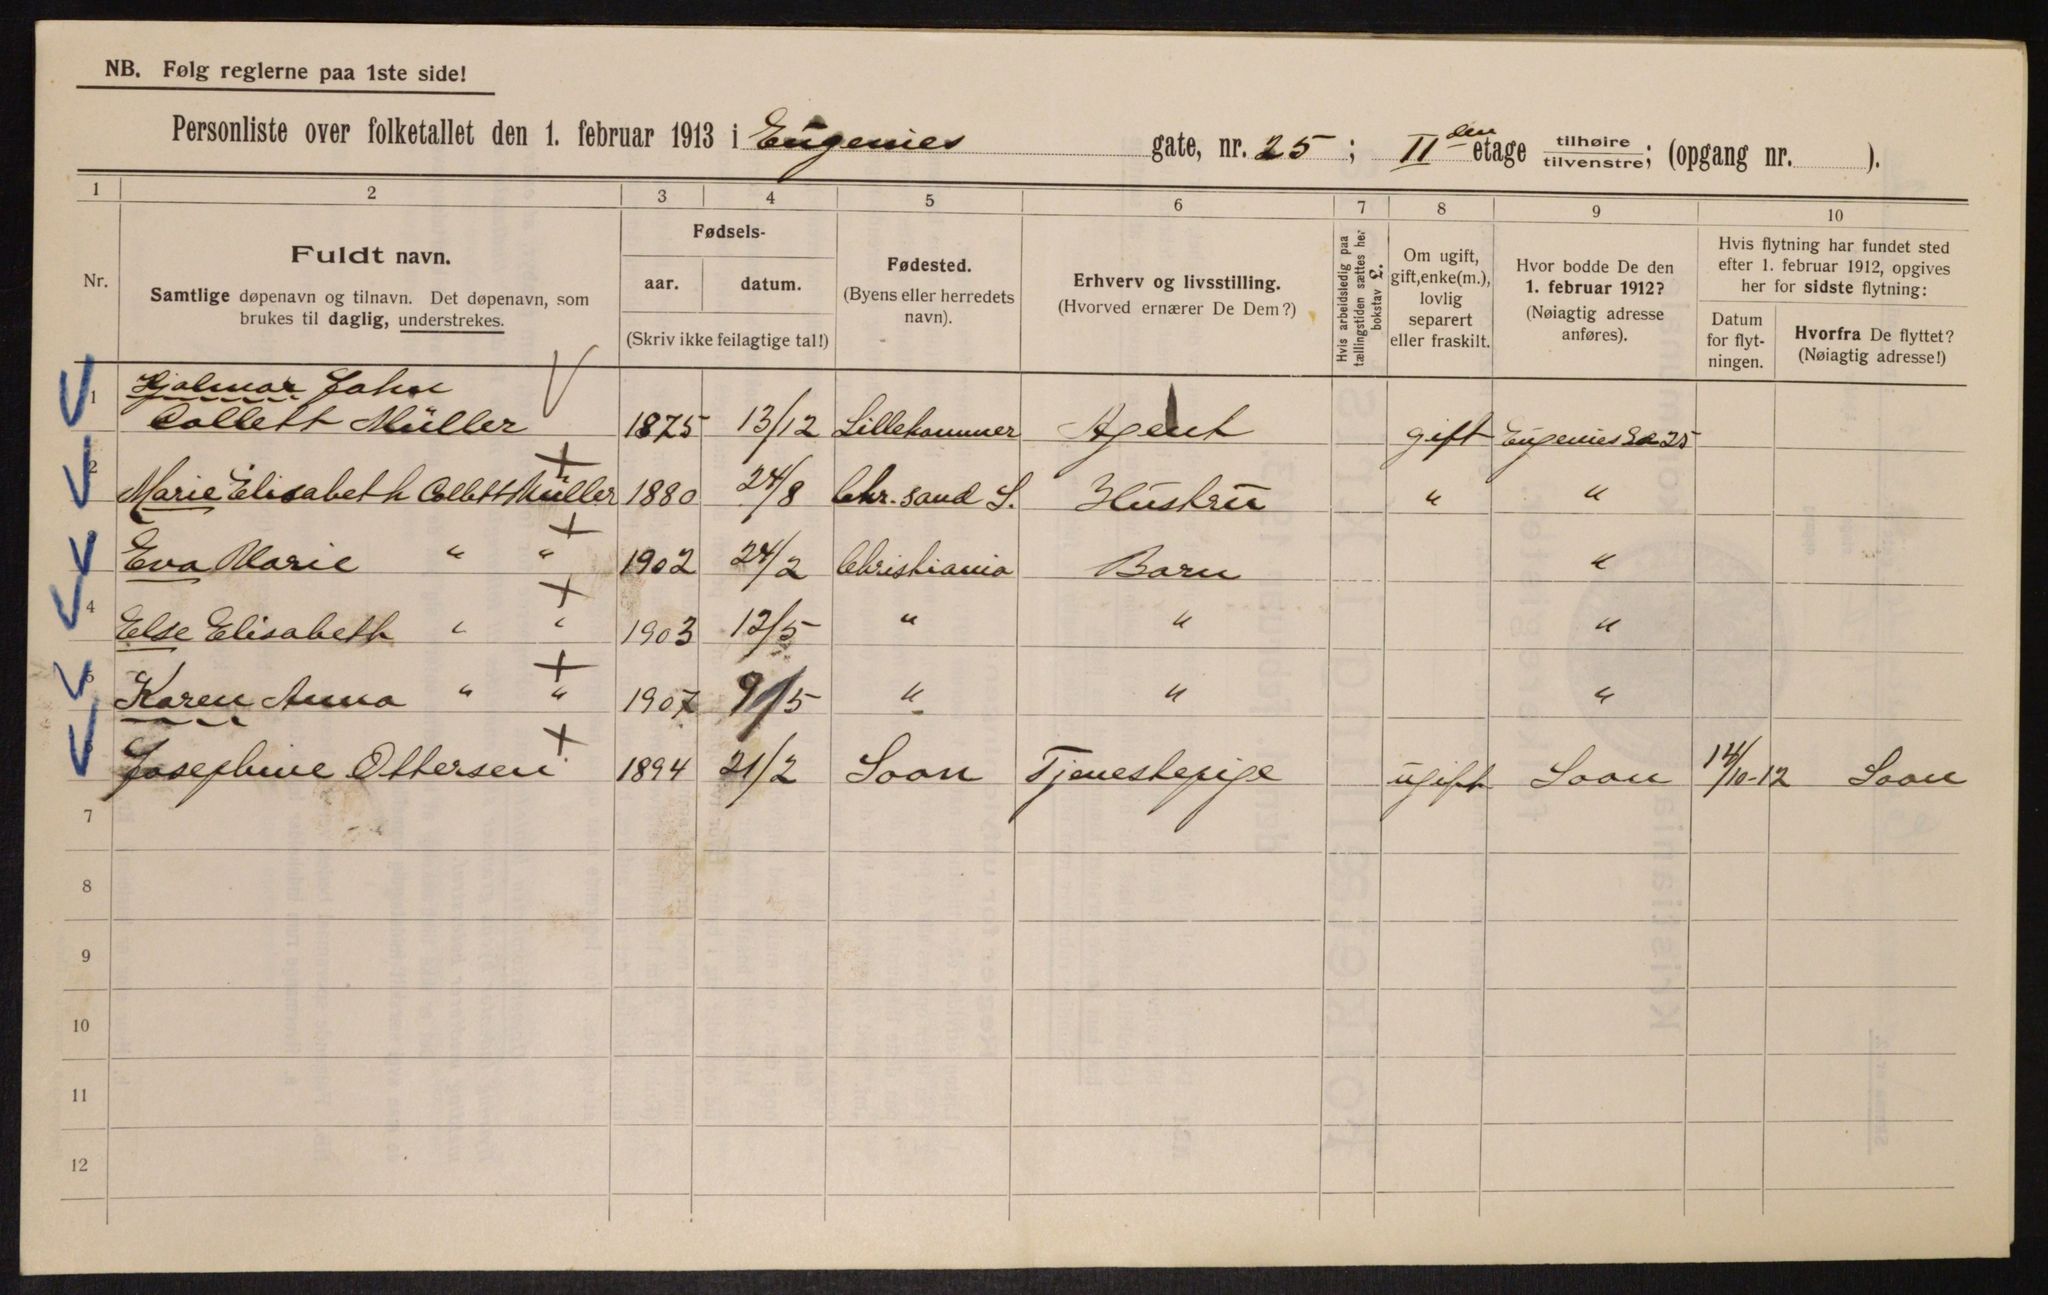 NB. Følg reglerne paa 1ste side!
Personliste over folketallet den 1. februar 1913 i Eugenies gate, nr. 25; II den etage tilhøire tilvenstre; (opgang nr. ).
1 2 3 4 5 6 7 8 9 10
Nr.
Fuldt navn.
Samtlige døpenavn og tilnavn. Det døpenavn, som
brukes til daglig, understrekes.
Fødsels-
aar. datum.
(Skriv ikke feilagtige tal!)
Fødested.
(Byens eller herredets
navn).
Erhverv og livsstilling.
(Hvorved ernærer De Dem?)
Hvis arbeidsledig paa
tællingstiden sættes her
bokstav L.
Om ugift,
gift, enke(m.),
lovlig
separert
eller fraskilt.
Hvor bodde De den
1. februar 1912?
(Nøiagtig adresse
anføres).
Hvis flytning har fundet sted
efter 1. februar 1912, opgives
her for sidste flytning:
Datum
for flyt-
ningen.
Hvorfra De flyttet?
(Nøiagtig adresse!)
1 Hjalmar John
Collett Müller 1875 13/12 Lillehammer Agent gift Eugenies Ga 25
2 Marie Elisabeth Collett Müller 1880 24/8 Chr. sand S. Hustru " "
3 Eva Marie " " 1902 24/2 Christiania Barn "
4 Else Elisabeth " " 1903 12/5 " " "
5 Karen Anna " " 1907 9/5 " " "
6 Josephine Ottersen 1894 21/2 Soon Tjenestepige ugift Soon 14/10-12 Soon
7
8
9
10
11
12